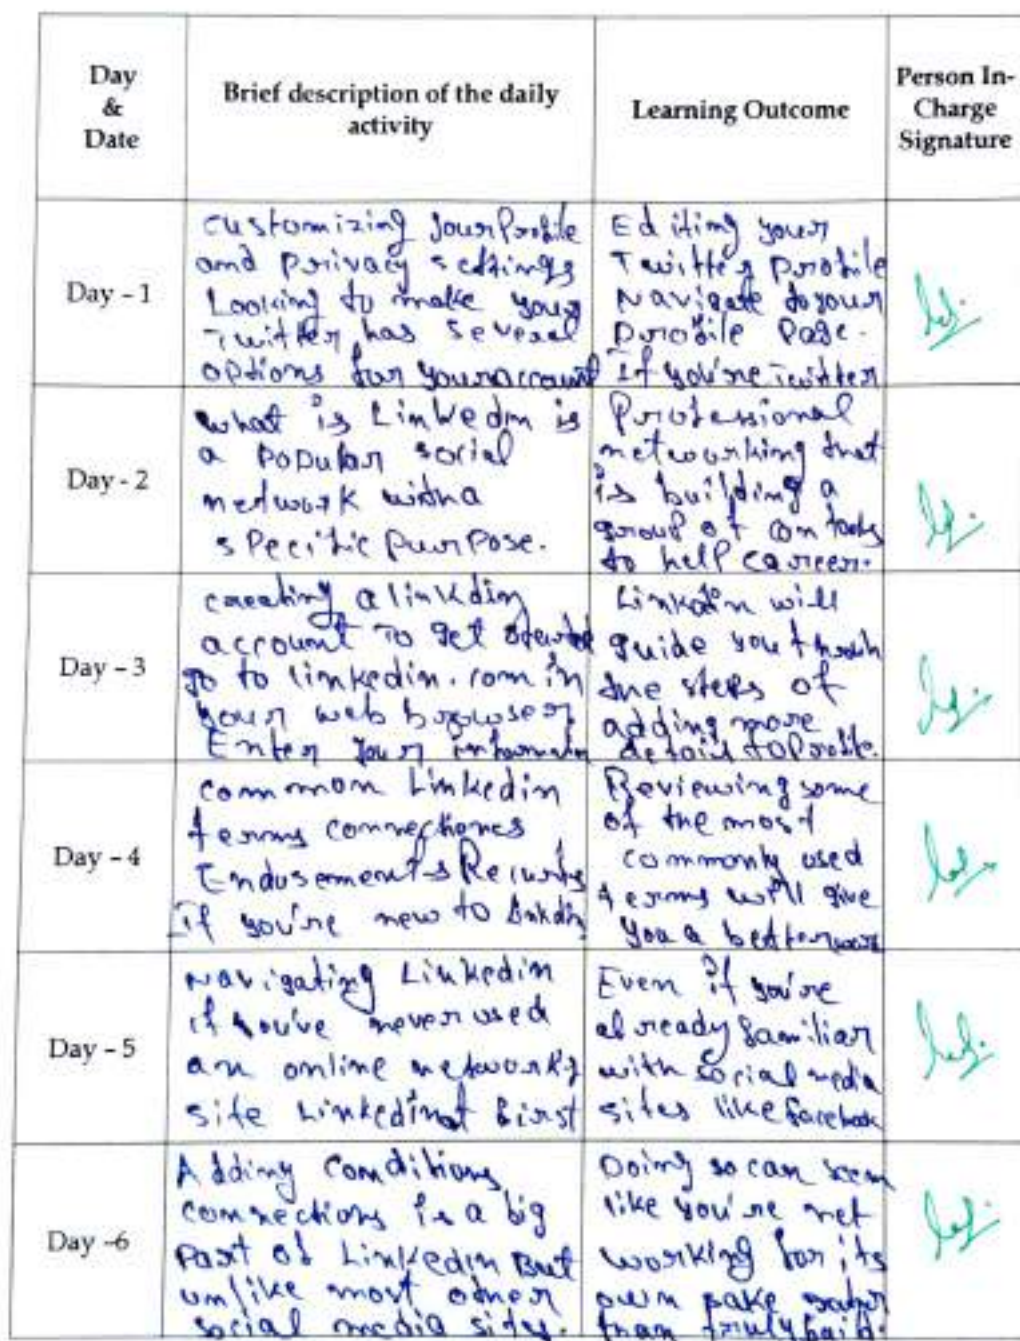 Day
&
Date
Brief description of the daily
activity
Learning Outcome
Person In-
Charge
Signature
Day - 1
customizing your Profile
and Privacy settings
Looking to make your
Twitter has several
options for your account
Editing your
Twitter profile
Navigate to your
profile page.
If you're Twitter
Day - 2
what is Linkedin is
a popular social
network with a
specific purpose.
Professional
networking that
is building a
group of contacts
to help career.
Day - 3
creating a linkdin
account To get
go to linkedin.com in
your web browser
Enter your
Linkdin will
guide you
the steps of
adding more
details to Profile.
Day - 4
common Linkedin
terms connections
Endusements
if you're new to linkdin
Reviewing some
of the most
commonly used
terms will give
you a better
Day - 5
Navigating Linkedin
if you've never used
an online
site Linkedin at first
Even if you're
already familiar
with social media
sites like facebook
Day -6
Adding Conditions
connections is a big
part of Linkedin But
unlike most other
social media sites.
Doing so can seem
like you're net
working for its
own sake rather
than truly